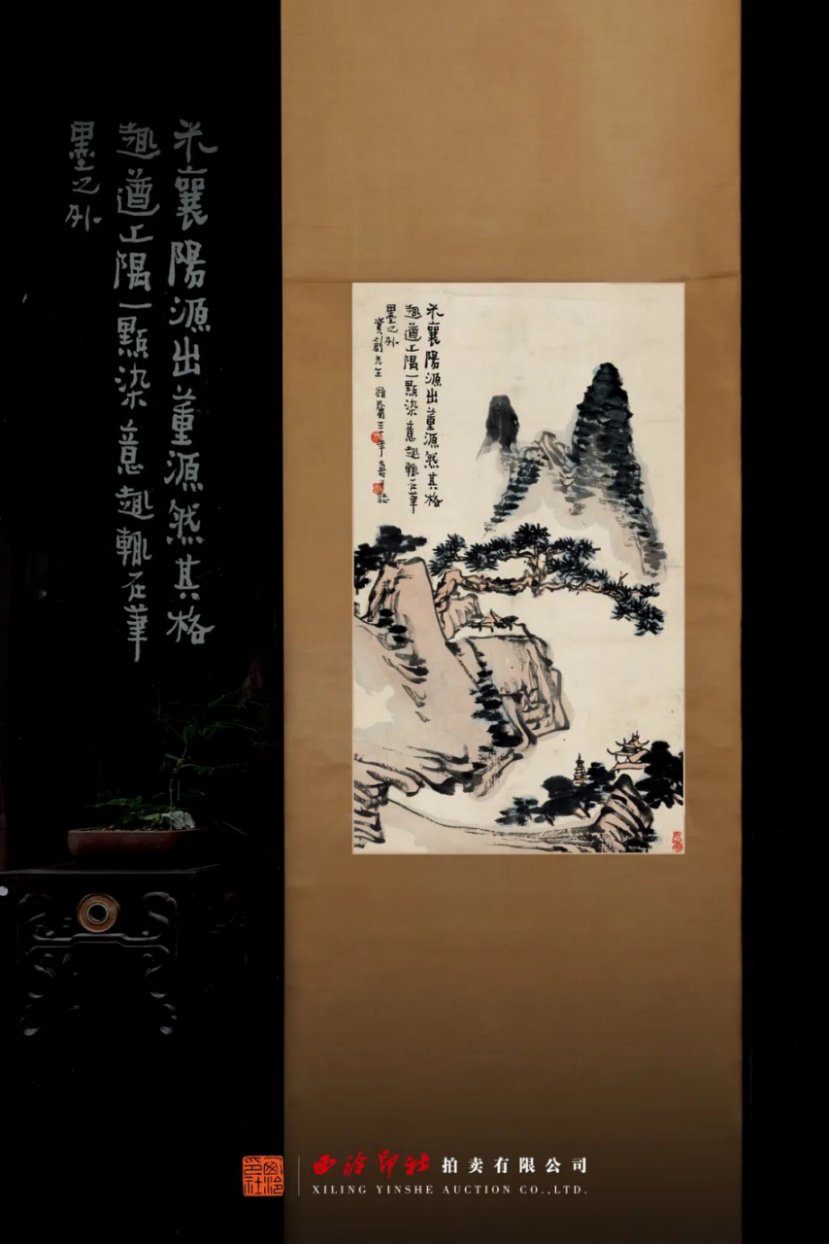 米襄陽源出董源然其格
趣遒上隅一點染意趣輒在筆
墨之外
米襄陽源出董源然其格
趣遒上隅一點染意趣輒在筆
墨之外
先生
西泠印社
西泠印社拍卖有限公司
XILING YINSHE AUCTION CO.,LTD.